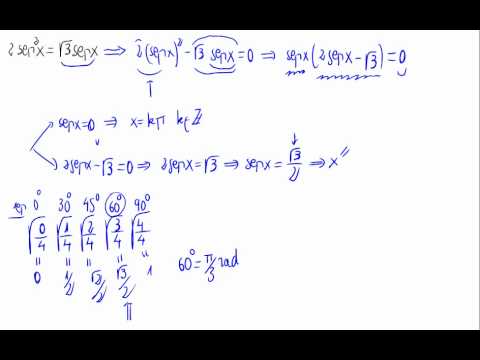 2 sen²x = √3 senx ⇒ 2(senx)² - √3 senx = 0 ⇒ senx(2senx - √3) = 0
senx = 0 ⇒ x = kπ k∈ℤ
2senx - √3 = 0 ⇒ 2senx = √3 ⇒ senx = √3/2 ⇒ x
sen 0° 30° 45° 60° 90°
√0/4 √1/4 √2/4 √3/4 √4/4
" " " " "
0 1/2 √2/2 √3/2 1 60° = π/3 rad